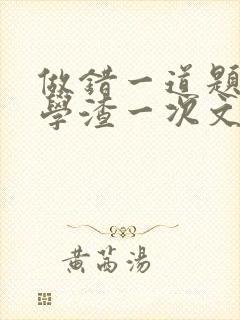 做錯一道題
學渣一次文
黃芮湯